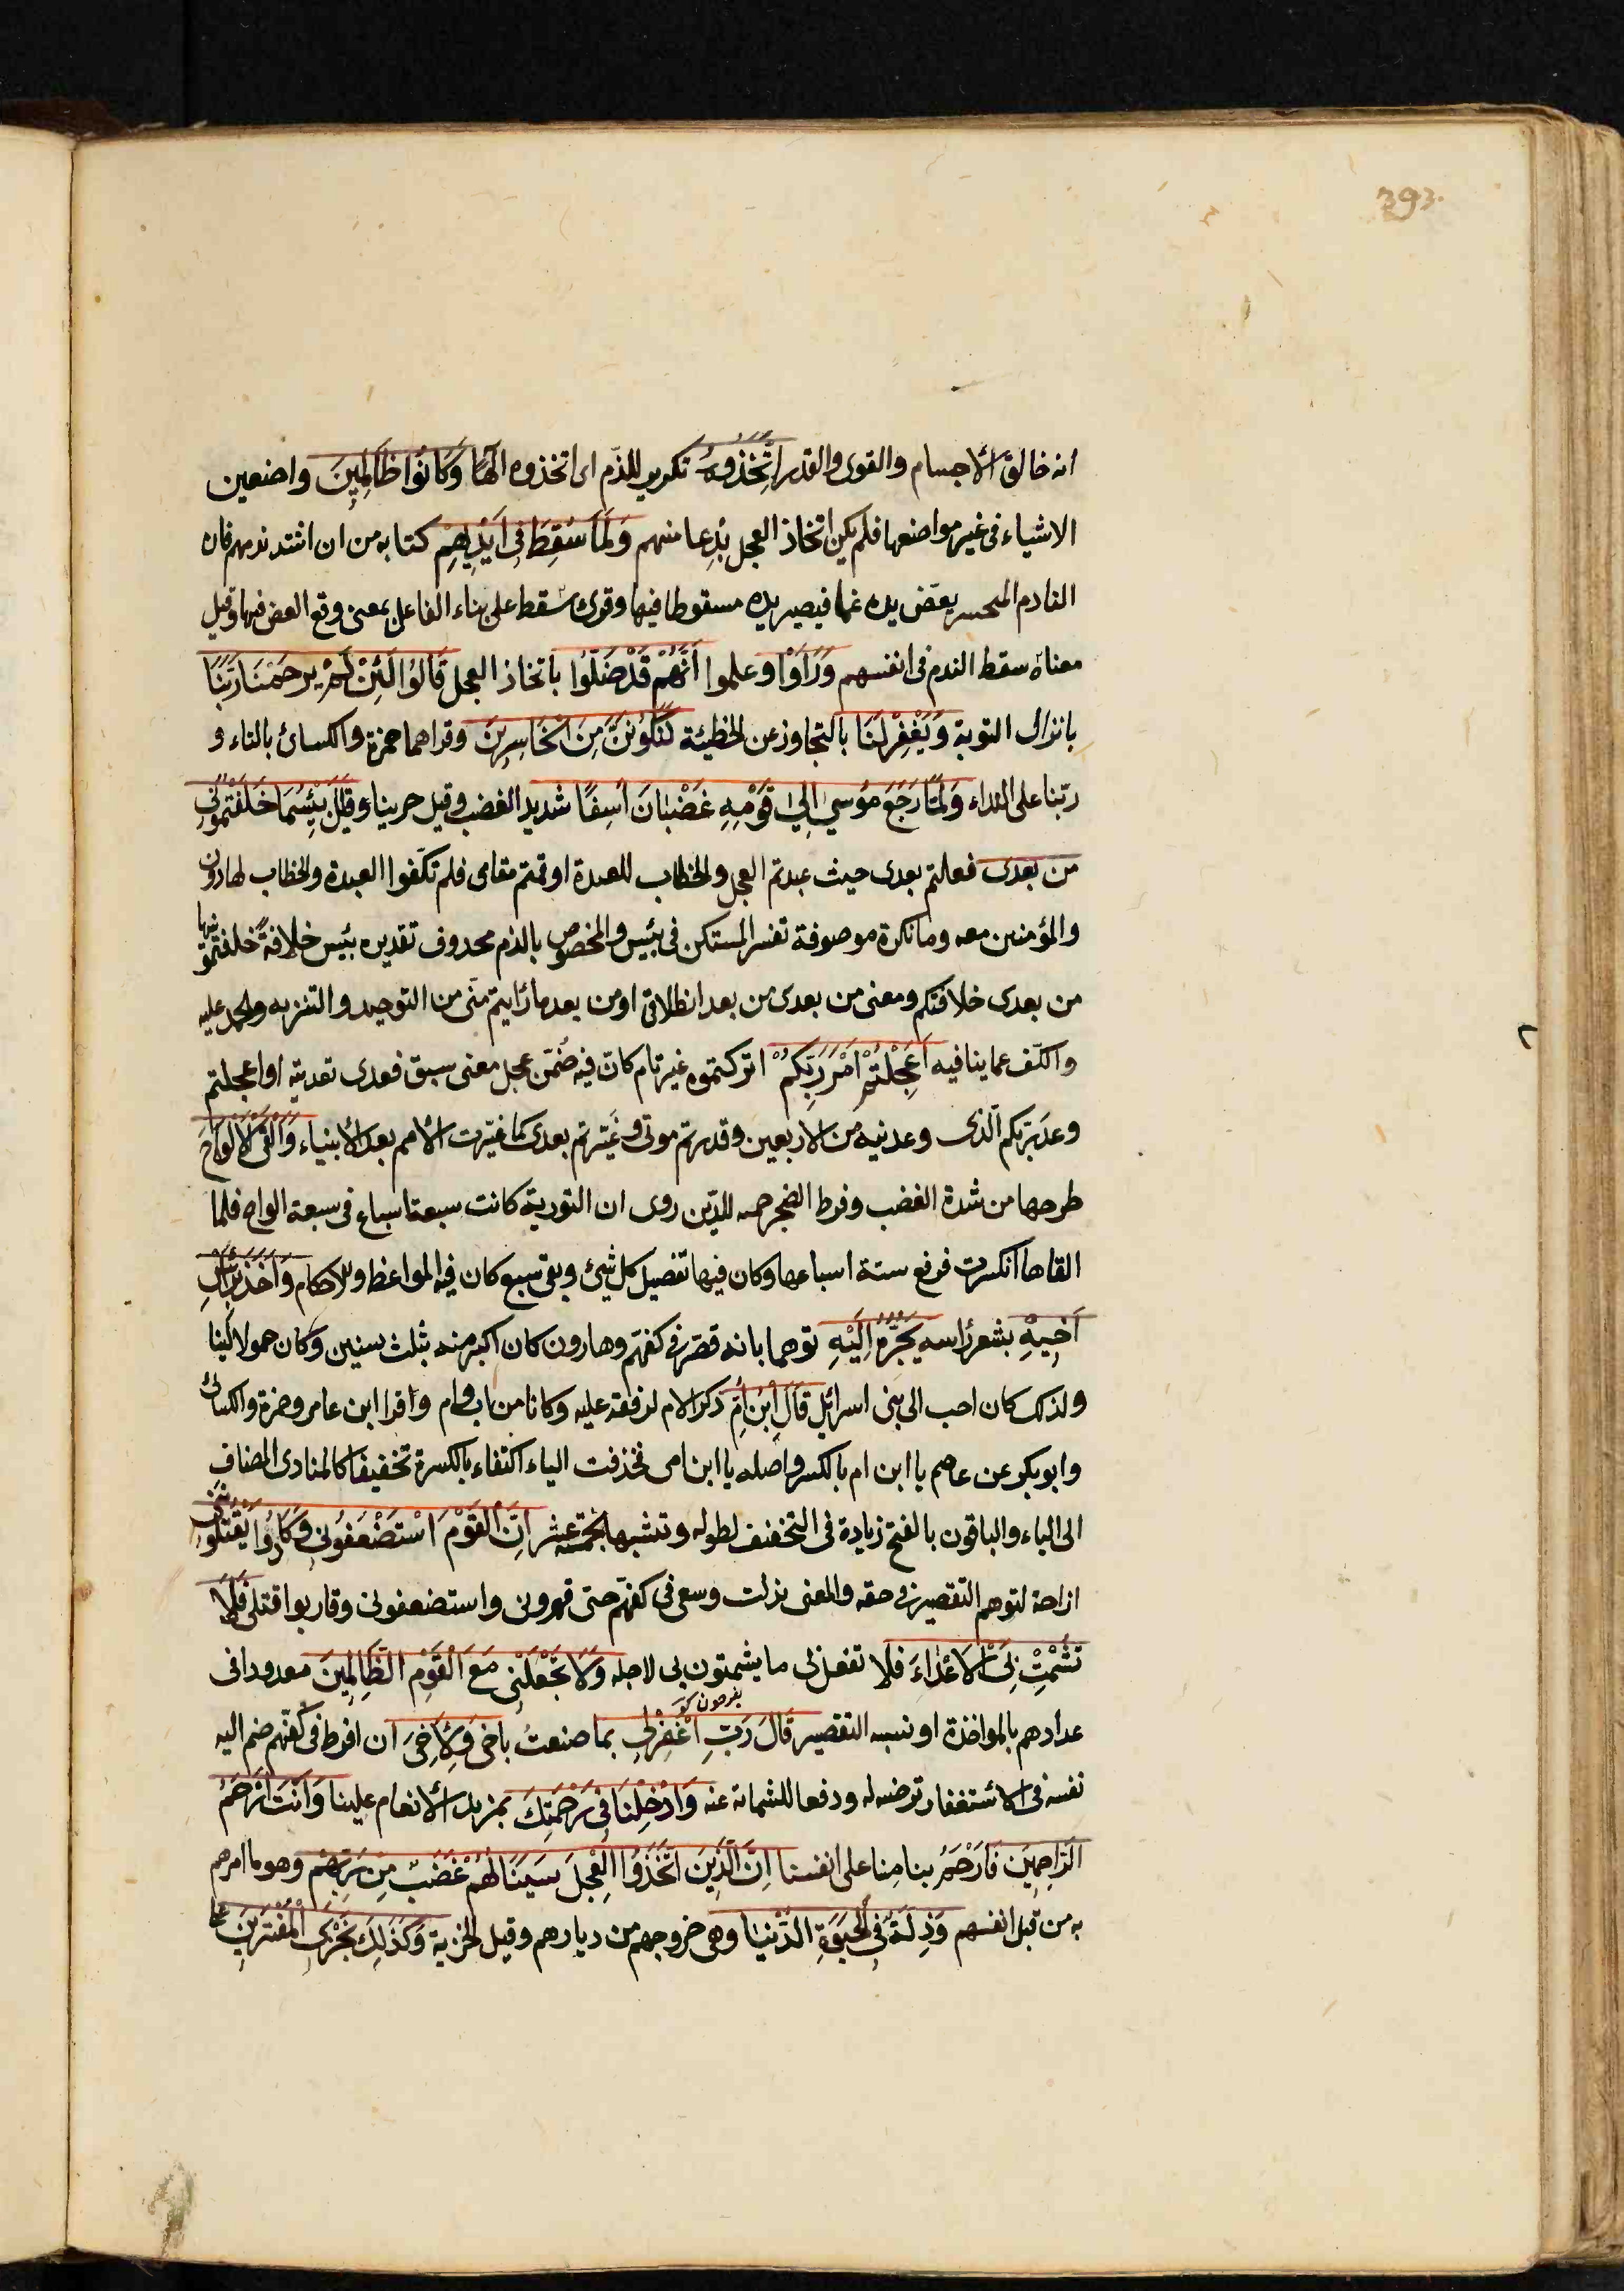 393.
انه خالق الأجسام والقوى والقدر اِتَّخَذُوهُ تكرير للذّم اى اتخذوه الٰهًا وَكَانُوا ظَالِمِينَ واضعين
الاشياء فى غير مواضعها فلم يكن اتخاذ العجل بِدعا منهم وَلَمَّا سُقِطَ فِى اَيْدِيهِمْ كتابه من ان اشتد ندمهم فان
النادم المتحسر يعضّ يده غما فيصير يده مسقوطا فيها وقرئ سَقط على بناء الفاعل بمعنى وقع العض فيها وقيل
معناه سقط الندم فى انفسهم وَرَاَوْا وعلموا اَنَّهُمْ قَدْ ضَلُّوا باتخاذ العجل قَالُوا لَئِنْ لَمْ يَرْحَمْنَا رَبُّنَا
بانزال التوبة وَيَغْفِرْ لَنَا بالتجاوز عن الخطيئة لَنَكُونَنَّ مِنَ الْخَاسِرِينَ وقراهما حمزة والكسائ بالتاء و
ربّنا على النداء وَلَمَّا رَجَعَ مُوسىٰ اِلىٰ قَوْمِهِ غَضْبَانَ اَسِفًا شديد الغضب وقيل حرينا وقيل بِئْسَمَا خَلَفْتُمُونِى
مِن بَعْدِى فعلتم بعدى حيث عبدتم العجل والخطاب للعبدة او قمتم مقامى فلم تكفوا العبدة والخطاب لهارون
والمؤمنين معه وما نكرة موصوفة تفسر المستكن فى بئس والمخصوص بالذم محذوف تقديره بئس خلافةً خلفتمونيها
من بعدى خلافتكم ومعنى من بعدى من بعد انطلاقى او من بعد ما رايتم منّى من التوحيد والتنزيه والحمل عليه
والكّف عما ينافيه اَعَجِلْتُمْ اَمْرَ رَبِّكُمْ اتركتموه غير تام كانّ فيه ضُمّن عجل معنى سبق فعدى تعديته او اعجلتم
وعد ربّكم الّذى وعدنيه من الاربعين وقدرتم موتى وغيّرتم بعدى كما غيّرت الأمم بعد الأنبياء وَاَلْقَى الْاَلْوَاحَ
طرحها من شدة الغضب وفرط الضجر حمية للدّين روى ان التورية كانت سبعة اسباع فى سبعة الواح فلما
القاها انكسرت فرفع ستة اسباعها وكان فيها تفصيل كل شئ وبقى سبع كان فيه المواعظ والاحكام وَاَخَذَ بِرَاْسِ
اَخِيهِ بشعر راسه يَجُرُّهُ اِلَيْهِ توهما بانه قصّر فى كفهّم وهارون كان اكبر منه بثلث سنين وكان حمولا لينا
ولذلك كان احب الى بنى اسرائل قَالَ ابْنَ اُمَّ ذكر الام لرفقه عليه وكانا من اب وام واقرا ابن عامر وحمزة والكسائ
وابو بكر عن عاصم يا ابن ام بالكسر واصله يا ابن امى فحذفت الياء اكتفاء بالكسرة تخفيفا كالمنادى المضاف
الى الياء والباقون بالفتح زيادة فى التخفيف لطوله وتشبيها بخمسة عشر اِنَّ الْقَوْمَ اسْتَضْعَفُونِى وَكَادُوا يَقْتُلُونَنِى
ازاحة لتوهم التقصير فى حقه والمعنى بذلت وسعى فى كفهّم حتى قهرونى واستضعفونى وقاربوا قتلى فَلَا
تُشْمِتْ بِىَ الْاَعْدَاءَ فلا تفعل بى ما يشمتون بى لاجله وَلَا تَجْعَلْنِى مَعَ الْقَوْمِ الظَّالِمِينَ معدودا فى
عدادهم بالمواخذة او نسبه التقصير قَالَ رَبِّ اغْفِرْ لِى بما صنعتُ باخى وَلِاَخِى ان افرط فى كفهّم ضم اليه
نفسه فى الاستغفار ترضية له ودفعا للشماتة عنه وَاَدْخِلْنَا فِى رَحْمَتِكَ بمزيد الأنعام علينا وَاَنْتَ اَرْحَمُ
الرَّاحِمِينَ فَارْحَمْ بنا منا على انفسنا اِنَّ الَّذِينَ اتَّخَذُوا الْعِجْلَ سَيَنَالُهُمْ غَضَبٌ مِنْ رَبِّهِمْ وهو ما امرهم
به من قبل انفسهم وَذِلَّةٌ فِى الْحَيٰوةِ الدُّنْيَا وهى خروجهم من ديارهم وقيل الجزية وَكَذٰلِكَ نَجْزِى الْمُفْتَرِينَ على